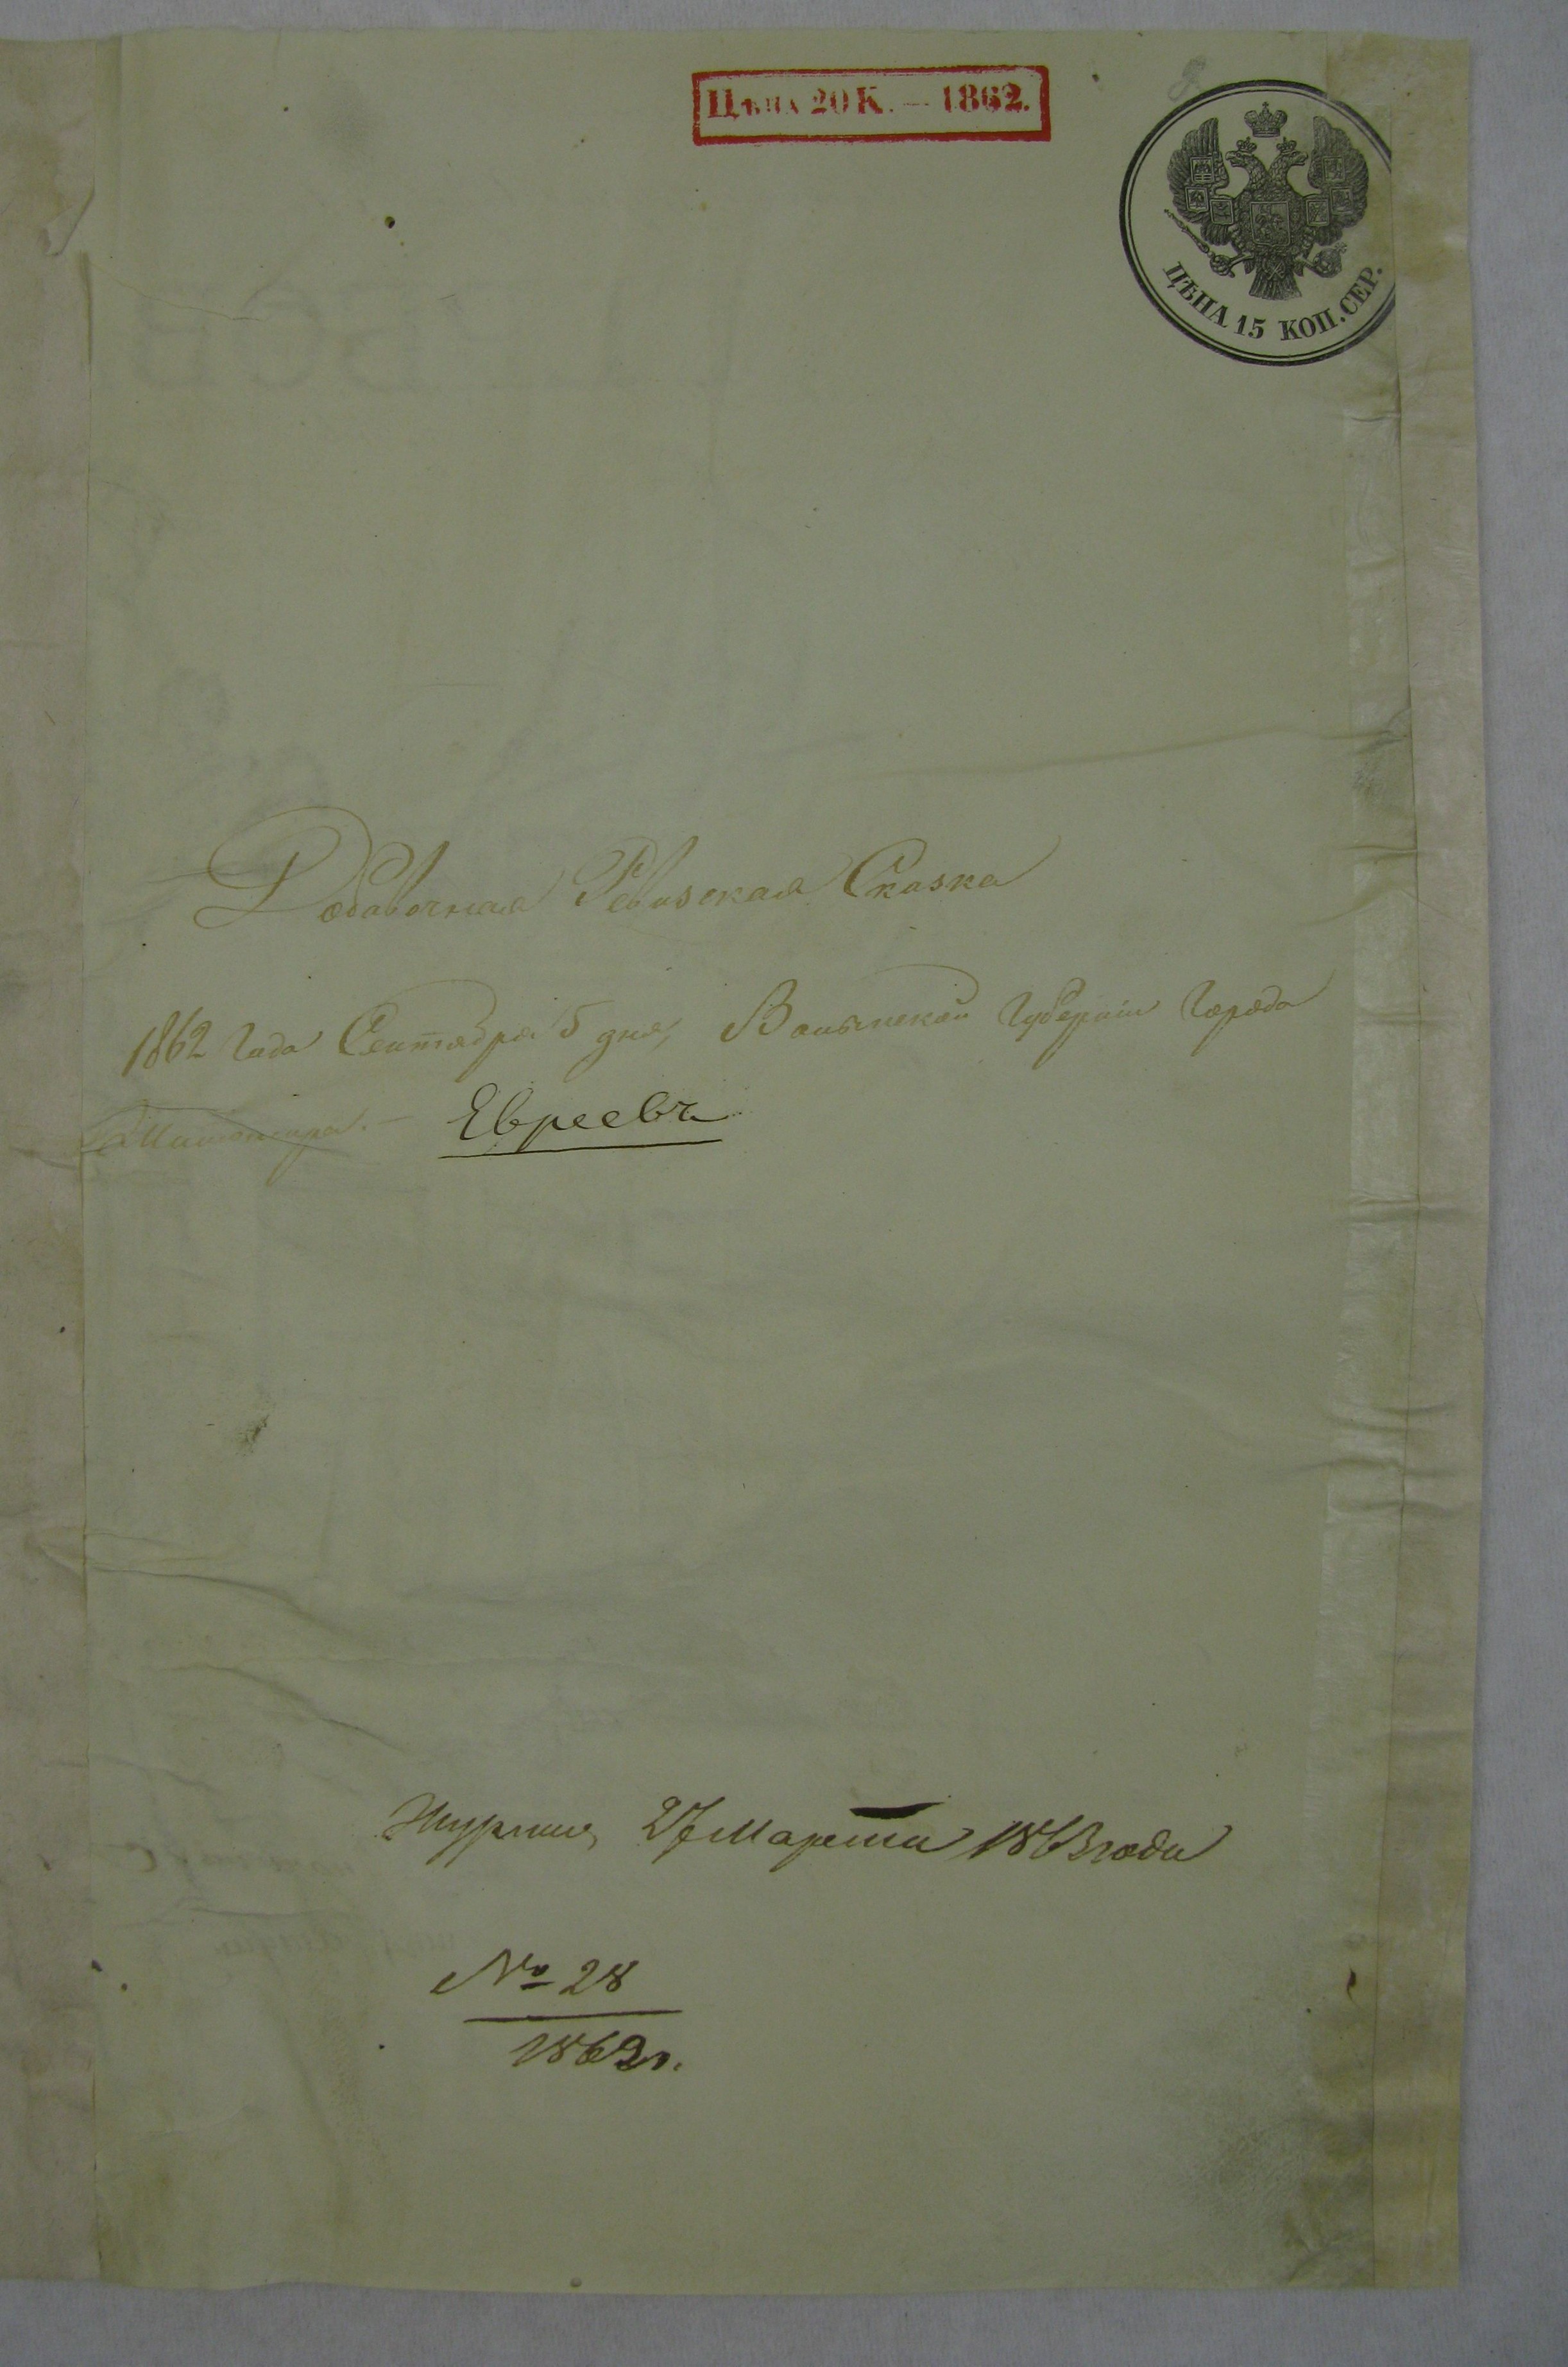 Цѣна 20 К. — 1862.
ЦѢНА 15 КОП. СЕР.
Добавочная Ревизская Сказка
1862 Года Сентября 5 дня, Волынской Губернiи Города
Житомира. — Евреевъ
27 Марта 1863 года
№ 28
1863 г.